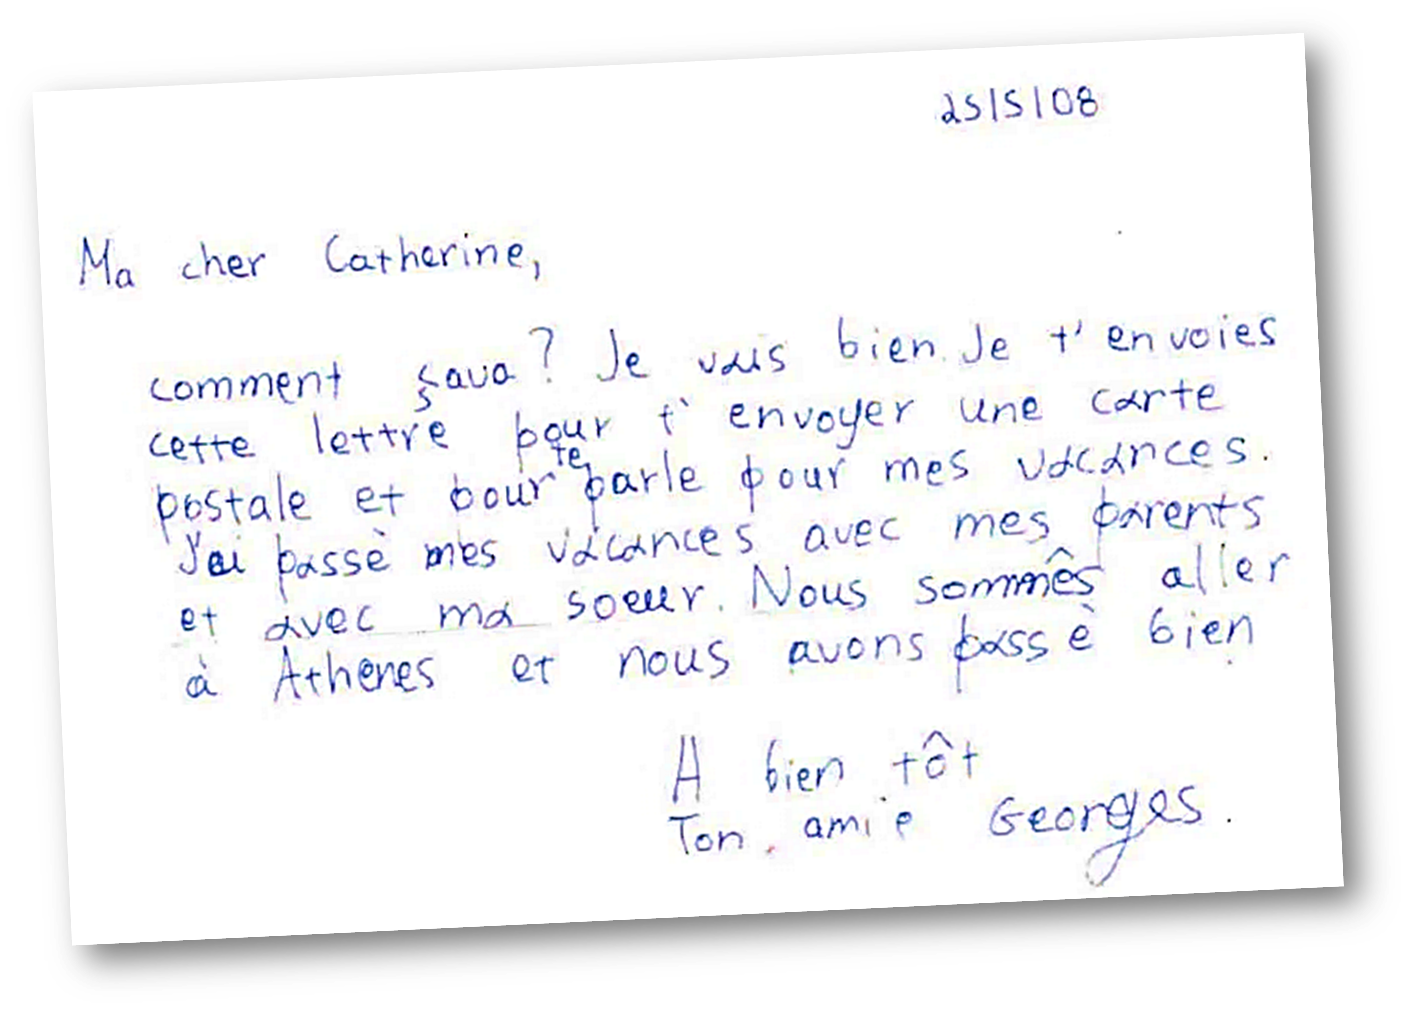 25/5/08
Ma cher Catherine,
comment çava? Je vais bien. Je t'envoies
cette lettre pour t'envoyer une carte
postale et pour te parle pour mes vacances.
J'ai passè mes vacances avec mes parents
et avec ma soeur. Nous sommês aller
à Athenes et nous avons passè bien
A bien tôt
Ton amie Georges.